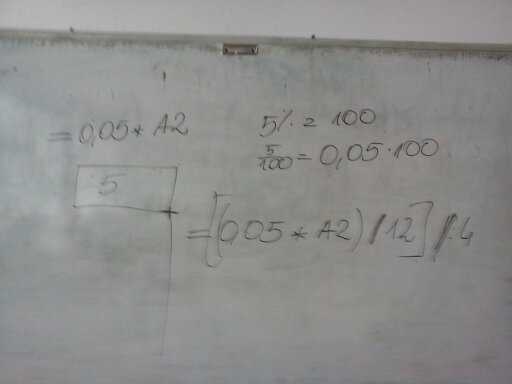 =0,05*A2
5
5%=100
5/100=0,05·100
=[(0,05*A2)/12]/4